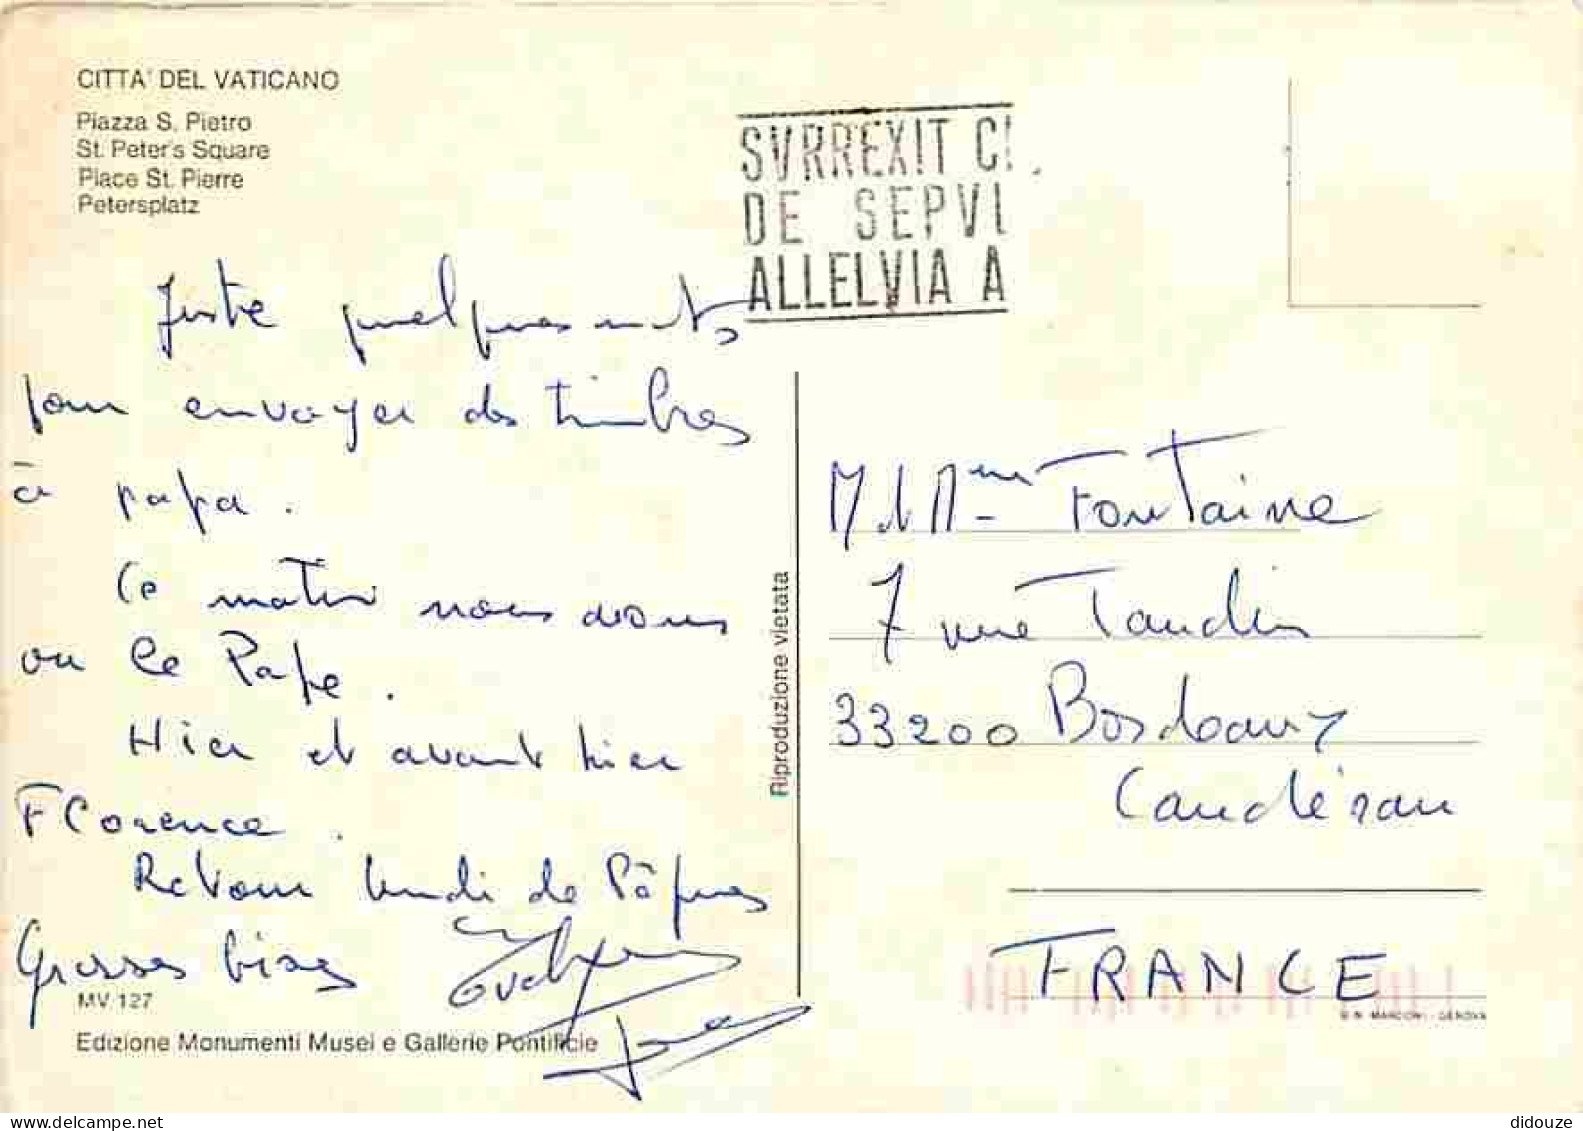 CITTA' DEL VATICANO
Piazza S. Pietro
St. Peter's Square
Place St. Pierre
Petersplatz
SVRREXIT C
DE SEPVL
ALLELVIA A
Juste quelques mots
pour envoyer des timbres
à papa.
Ce matin nous avons
vu le Pape.
Hier et avant hier
Florence.
Retour lundi de Pâques
Grosses bises
MV 127
Edizione Monumenti Musei e Gallerie Pontificie
Riproduzione vietata
M et Mme Fontaine
7 rue Taudin
33200 Bordeaux
Caudéran
FRANCE
MARCONI - GENOVA
didouze
delcampe.net